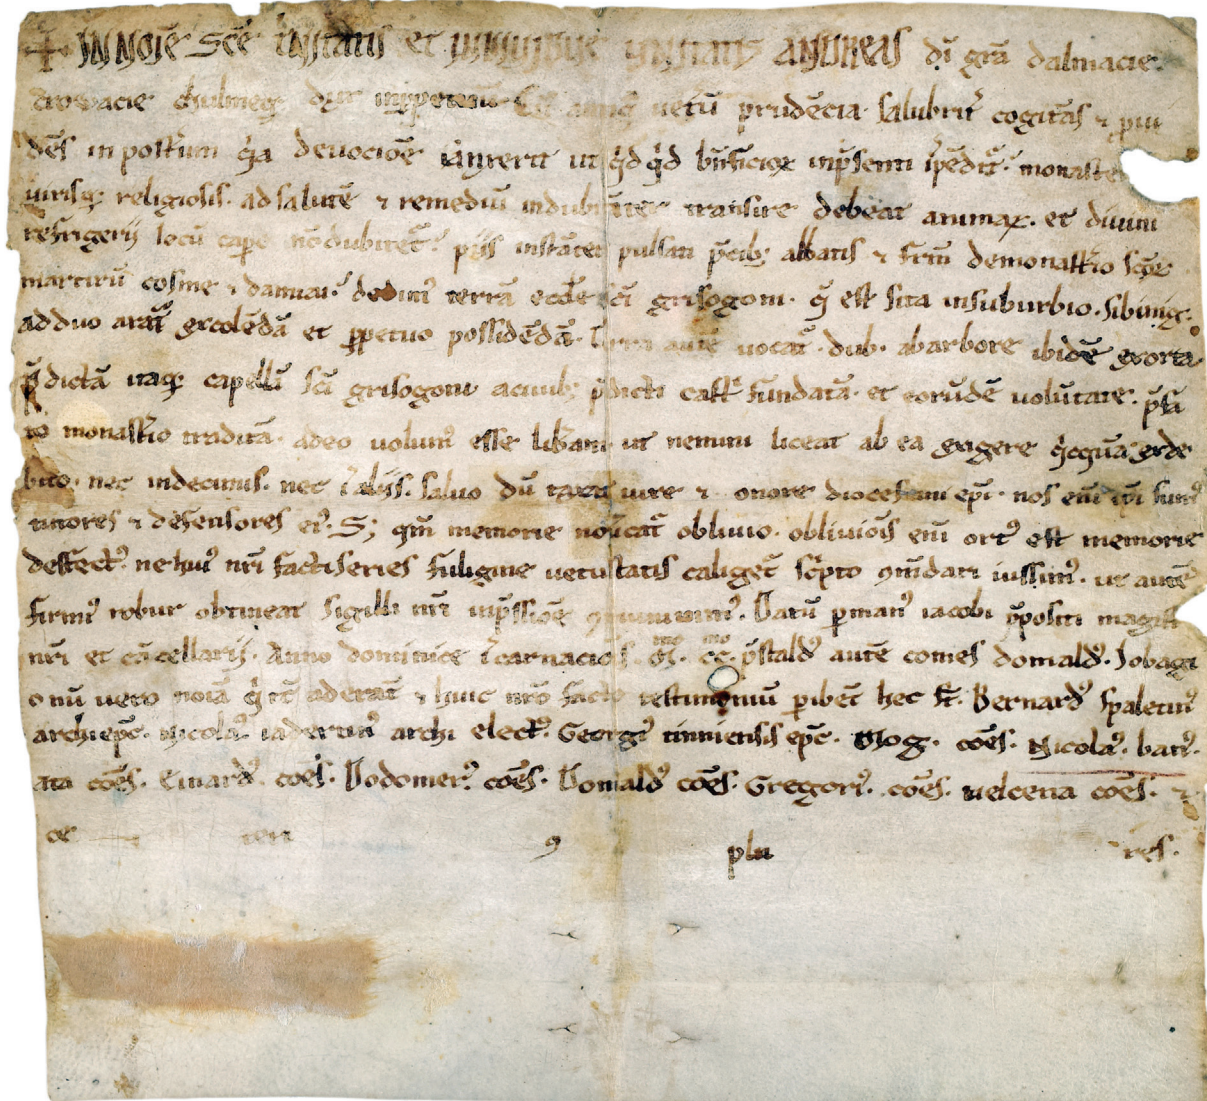 ✝ IN NOIE SCE TRITATIS et INDIVIDUE UNITATIS ANDREAS di gra dalmacie
crowacie chulmeq; dux inppetuu. prudecia salubrit cogitas ⁊ pui
des in posteru qa devocioe ut qdqd bnficior inpsenti ipedit monaste
virisq; religiosis. ad salute ⁊ remediu indubitater transire debeat animar. et divini
refrigerij locu cape no dubitet. pijs instater pulsati pcib; abbatis ⁊ frm de monastio scor
martiru cosme ⁊ damiai. dedim terra eccle sci grisogoni. q est sita in suburbio. sibiniq;
ad duo arat excoleda et ppetuo possideda. Terra aute vocat. dub. ab arbore ibide exorta.
pdicta itaq; capella sci grisogoni a civib; pdicti cast fundata. et eorude volutate. psa
to monastio tradita. adeo volum esse libam. ut nemini liceat ab ea exigere qcqua ex de
bito. nec in decimis. nec i alijs. salvo du taxat iure ⁊ onore diocesani epi. nos eni sum
tutores ⁊ defensores ei. S; qm memorie novcat oblivio. obliviois eni ort est memorie
defect. ne hui nri facti series fuligine vetustatis caliget scpto 9mdari iussim. ut aute
firmi robur obtineat sigilli nri inpssioe 9munivim. Datu p man iacobi ppositi magist
nri et cacellarij. Anno dominice icarnaciois. M. CC. pstald aute comes domald. Jobagi
onu vero noia q it aderat ⁊ huic nro facto testimoniu pibet hec st. Bernard spaletin
archiepc. Nicola. iadertin archi elect. Georgi tinniensis epc. Mog. coes. Nicola. ban.
ata coes. coes. Dodomer. coes. Domald coes. Gregori. coes. velcena coes. ⁊
ce teri 9 plu res.